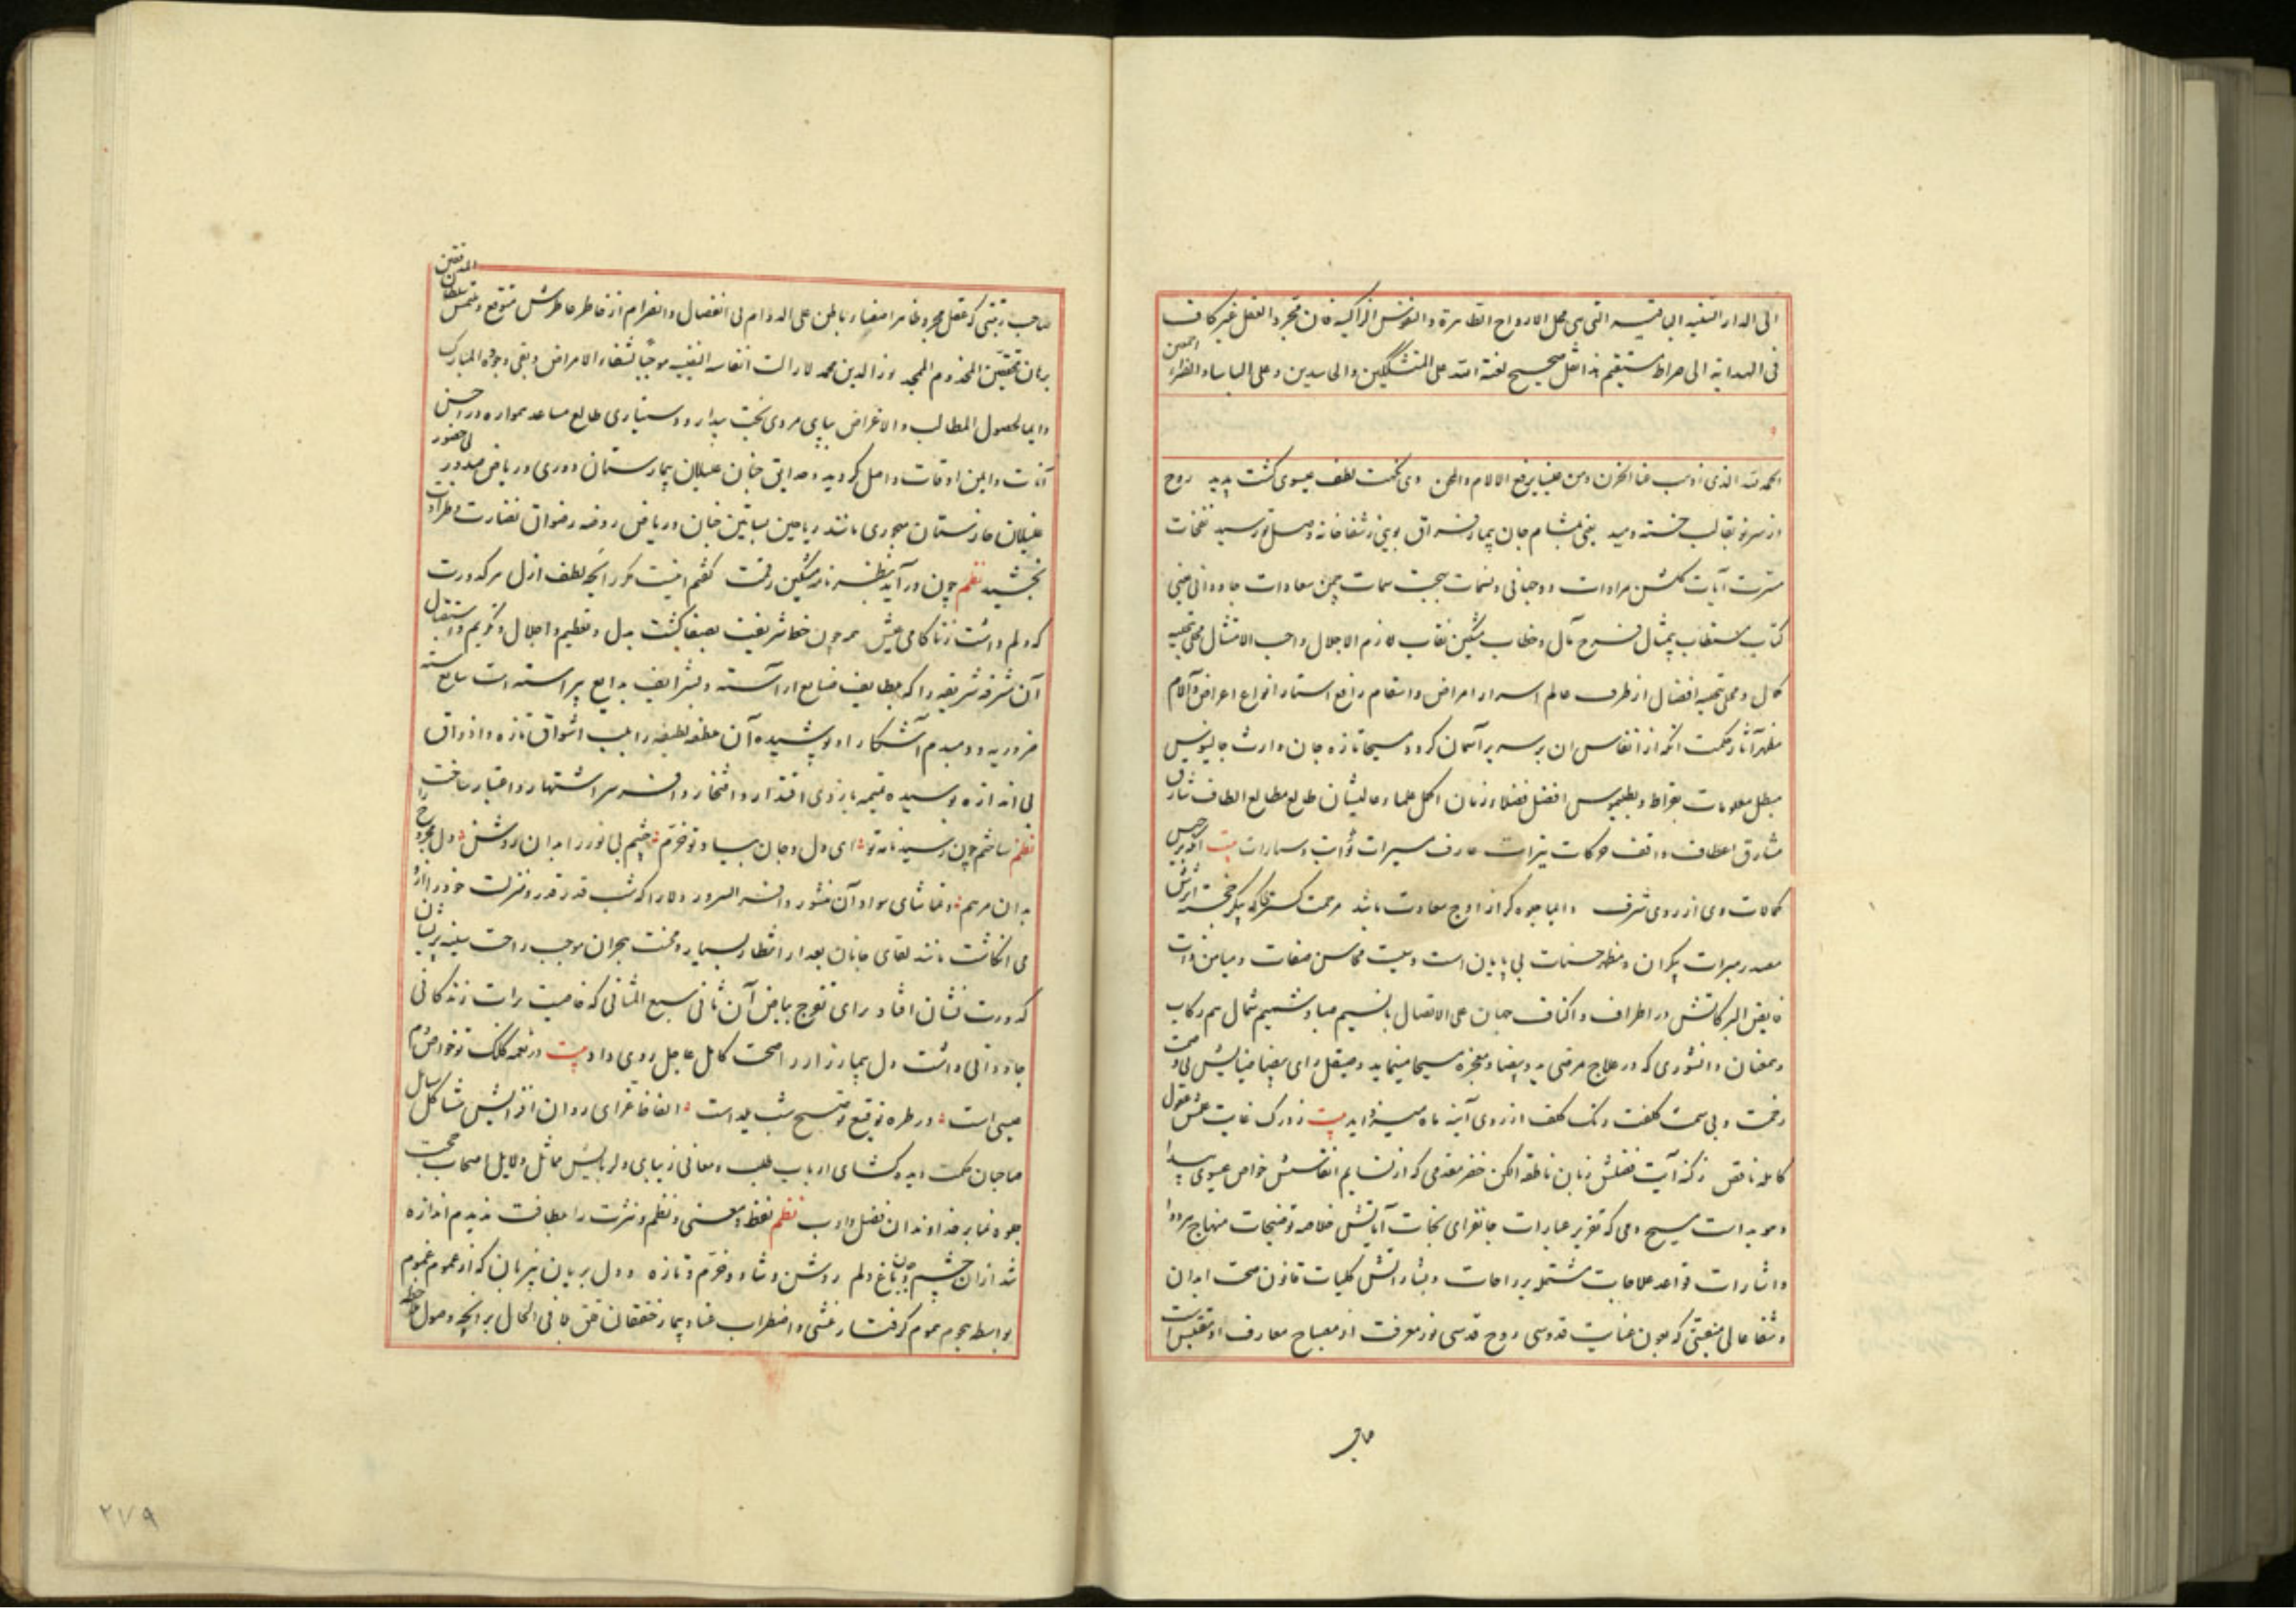 الی الدار النقیه الباقیه التی هی محل الارواح الطاهرة والنفوس الزاکیه فان مجرد العقل غیر کاف
فی الهدایة الی صراط مستقیم هذا نقل صحیح لعنة الله علی المتشککین والحاسدین وعلی الباساء والضراء اجمعین
الحمد لله الذی اذهب عنا الحزن ومن علینا برفع الالام والمحن وی نکهت لطف عیسوی گشت پدید روح
از سر نو بقالب خسته دمید یعنی بمشام جان بیمار فراق بویی ز شفاخانه وصل تو رسید نفحات
مسرت آیات گلشن مرادات دوجهانی ونسمات بهجت سمات چمن سعادات جاودانی یعنی
کتاب مستطاب بیمثال فرح مآل وخطاب مشکین نقاب لازم الاجلال واجب الامتثال محلی بحلیه
کمال و محلی بتحیه افضال از طرف عالم اسرار امراض واسقام رافع استار انواع اعراض وآلام
مظهر آثار حکمت انکه از انفاس ان بر سر بر آسمان کرده مسیحا تازه جان وارث جالینوس
مبطل معلومات بقراط وبطلیموس افضل فضلاء زمان اکمل علماء عالیشان طالع مطالع الطاف شارق
مشارق اعطاف واقف حرکات نیرات عارف سیرات ثوابت وسیارات بیت
کمالات وی از روی شرف دایما جلوه گر از اوج سعادت باشد مرحمت گستری که پیکر خجسته اثرش
مصدر مبرات بیکران ومظهر حسنات بی پایان است وصیت محاسن صفات ومیامن ذات
فایض البرکاتش در اطراف واکناف جهان علی الاتصال با نسیم صبا وشمیم شمال هم رکاب
وهمعنان دانشوری که در علاج مرضی ید بیضا ومعجزه مسیحا مینماید وصیقل رای بیضا ضیایش بی منت
زحمت وبی سمت کلفت زنگ کلف از روی آینه ماه میزداید بیت ز درک غایت عقلش عقول
کامله ناقص ز کنه آیت فضلش زبان ناطقه الکن خضر مقدمی که از نسایم انفاسش خواص عیسوی پیدا
وهویداست مسیح دمی که تقریر عبارات جانفزای نجات آیاتش خلاصه توضیحات منهاج مداوا
واشارات قواعد علاجات مشتمل بر راحات وبشاراتش کلیات قانون صحت ابدان
وشفا عالی منقبتی که بعون عنایت قدوسی روح قدسی نور معرفت از مصباح معارف او مقتبس است
صاحب
صاحب رتبتی که عقل مجرد ظاهرا مفیاض باطن علی الدوام بی انفصال وانصرام از خاطر عاطرش متوقع وملتمس سلطان المدققین
برهان المحققین المخدوم الممجد نور الدین محمد لا زالت انفاسه النفیسه موجبا لشفاء الامراض وبقی وجوده المبارک
دایما لحصول المطالب والاغراض بپای مردی بخت بیدار ودستیاری طالع مساعد همواره در احسن
آنات وایمن اوقات واصل گردیده حدایق جنان علیلان بیمارستان دوری وریاض صدور بی حضور
غلیلان خارستان مهجوری مانند ریاحین بساتین جنان وریاض روضه رضوان نضارت وطراوت
بخشید نظم چون درآید بنظر نامه مشکین رقمت گفتم اینست مگر رایحه لطف ازل هر کدورت
که دلم داشت ز ناکامی عیش همه چون خط شریفت بصفا گشت بدل وتعظیم واجلال وتکریم واستقبال
آن مشرفه شریفه را که بلطایف صنایع آراسته وبشرایف بدایع پیراسته است سته
ضروریه دیدم آشکارا وپوشیده آن ملطفه لطیفه را بلب اشواق تازه واذواق
بی اندازه بوسیده تمیمه بازوی اقتدار وافتخار وافسر سر اشتهار واعتبار ساخت
نظم ساختم چون رسید نامه تو ای دل وجان بیاد تو خرم چشم بی نور را بدان روشن دل مجروح را
بدان مرهم وتماشای سواد آن منشور وافر السرور ولا را که شب قدر قدر ومنزلت خود را ازو
می انگاشت مانند لقای جانان بعد از انتظار بسیار ومحنت هجران موجب راحت سینه پریشان
کدورت نشان افتاد برای تفرج بیاض آن ثانی سبع المثانی که خاصیت برات زندگانی
جاودانی داشت دل بیمار زار را صحت کامل عاجل روی داد بیت در نغمه کلک تو خواص دم
عیسی است در طره توقیع تو تسبیح شب یلداست الفاظ غرای روان افزایش مشاکل شمایل
صاحبان حکمت دیده گشای ارباب طلب ومعانی زیبای دلربایش مماثل دلایل اصحاب صحبت
جلوه نمابر خداوندان فضل وادب نظم لفظ ومعنی ونظم ونثرت را بلطافت ندیدم اندازه
شد ازان چشم وباغ دلم روشن وشاد وخرم وتازه ودل بریان بیزبان که از عموم غموم
بواسطه هجوم هموم گرفتار غشی واضطراب عنا وبیمار خفقان قلق فی الحال برایحه وصول
۲۷۹